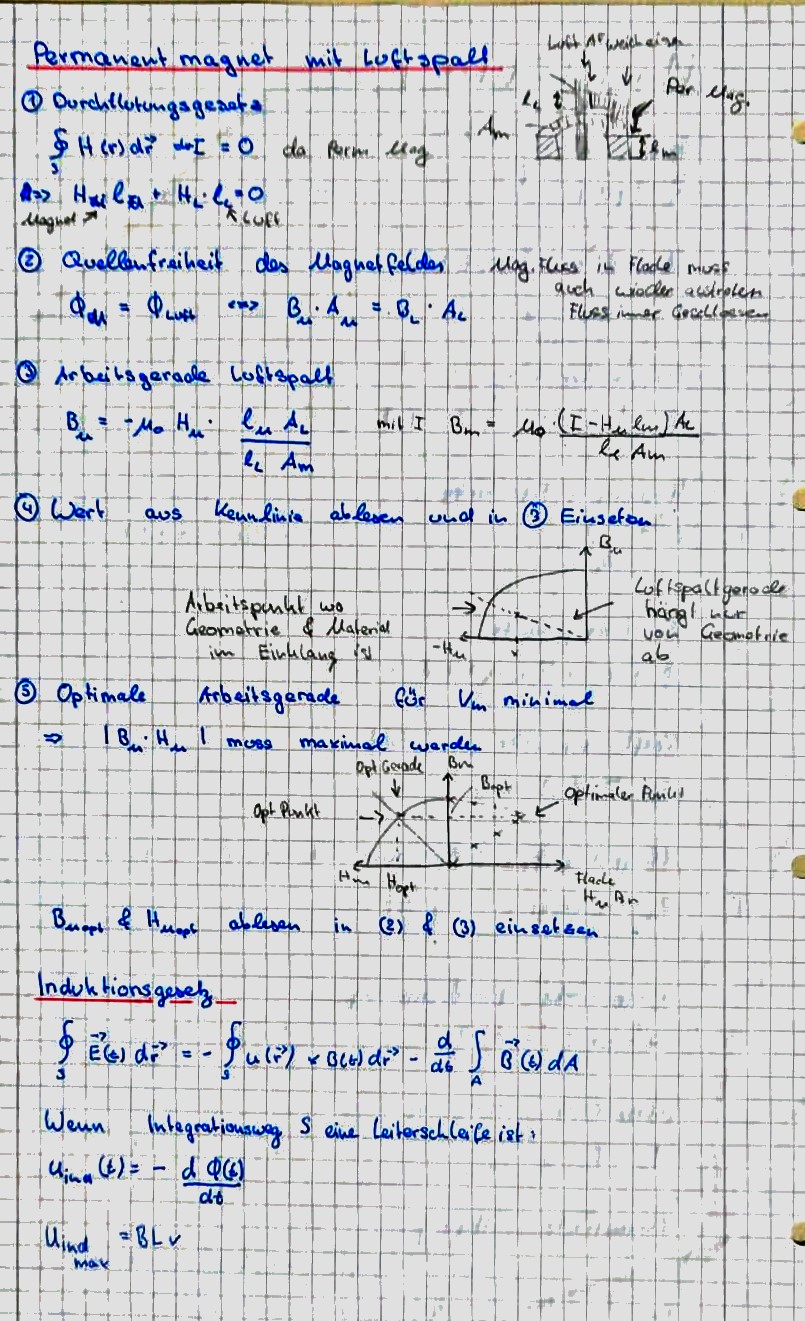 Permanentmagnet mit Luftspalt
Luft Weicheisen
Per Mag.
l_L
A_m
l_m
① Durchflutungsgesetz
∮_S H(r) dr⃗ = I = 0 da Perm Mag
=> H_M l_M + H_L · l_L = 0
Magnet Luft
② Quellenfreiheit des Magnetfeldes
Mag. Fluss in Fläche muss
auch wieder austreten
Fluss immer Geschlossen
Φ_M = Φ_Luft <=> B_M · A_M = B_L · A_L
③ Arbeitsgerade Luftspalt
B_M = -μ₀ H_M · (l_M A_L)/(l_L A_m) mit I B_m = μ₀ · ((I - H_M l_m) A_L)/(l_L A_m)
④ Wert aus Kennlinie ablesen und in ③ Einsetzen
B_M
Arbeitspunkt wo
Geometrie & Material
im Einklang ist
-H_M
Luftspaltgerade
hängt nur
von Geometrie
ab
⑤ Optimale Arbeitsgerade für V_m minimal
=> |B_M · H_M| muss maximal werden
Opt Gerade B_m
B_opt
Optimaler Punkt
Opt Punkt
H_m H_opt
Fläche
H_M B_m
B_Mopt & H_Mopt ablesen in (2) & (3) einsetzen
Induktionsgesetz
∮_S E⃗(t) dr⃗ = - ∮_S u(r⃗) × B(t) dr⃗ - d/dt ∫_A B⃗(t) dA
Wenn Integrationsweg S eine Leiterschleife ist:
U_ind(t) = - d Φ(t)/dt
U_ind max = B L v